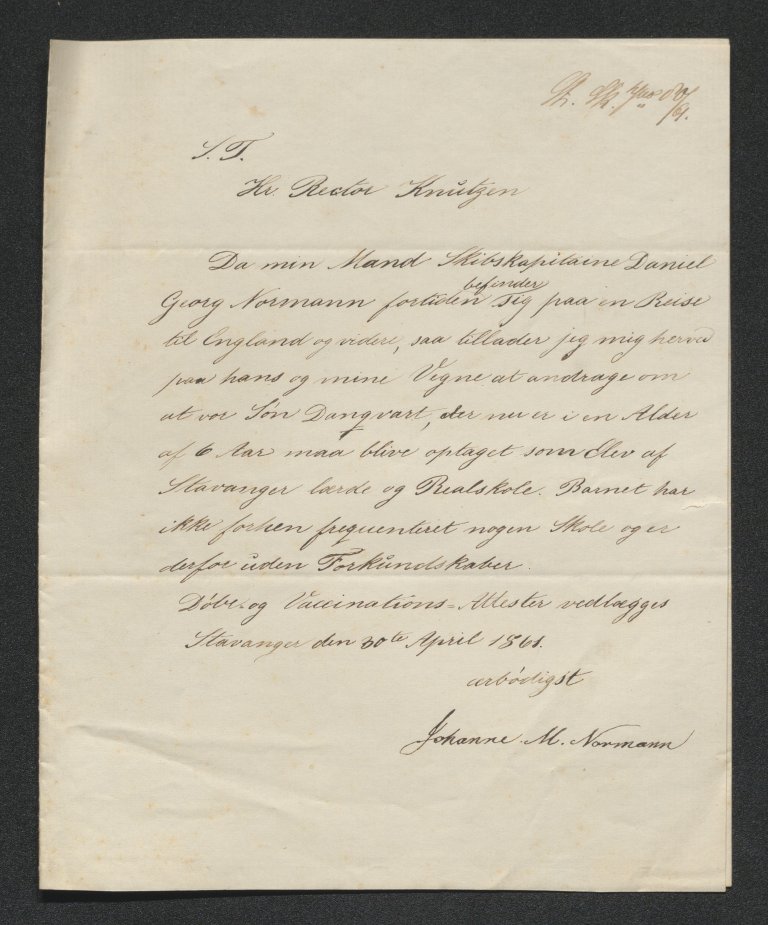 S. T.
Hr. Rector Knutzen
Da min Mand Skibskapitaine Daniel
Georg Normann fortiden befinder sig paa en Reise
til England og videre, saa tillader jeg mig herved
paa hans og mine Vegne at andrage om
at vor Søn Danqvart, der nu er i en Alder
af 6 Aar maa blive optaget som Elev af
Stavanger lærde og Realskole. Barnet har
ikke forhen frequenteret nogen Skole og er
derfor uden Forkundskaber.
Døbe- og Vaccinations-Attester vedlægges
Stavanger den 30te April 1861.
ærbødigst
Johanne M. Normann